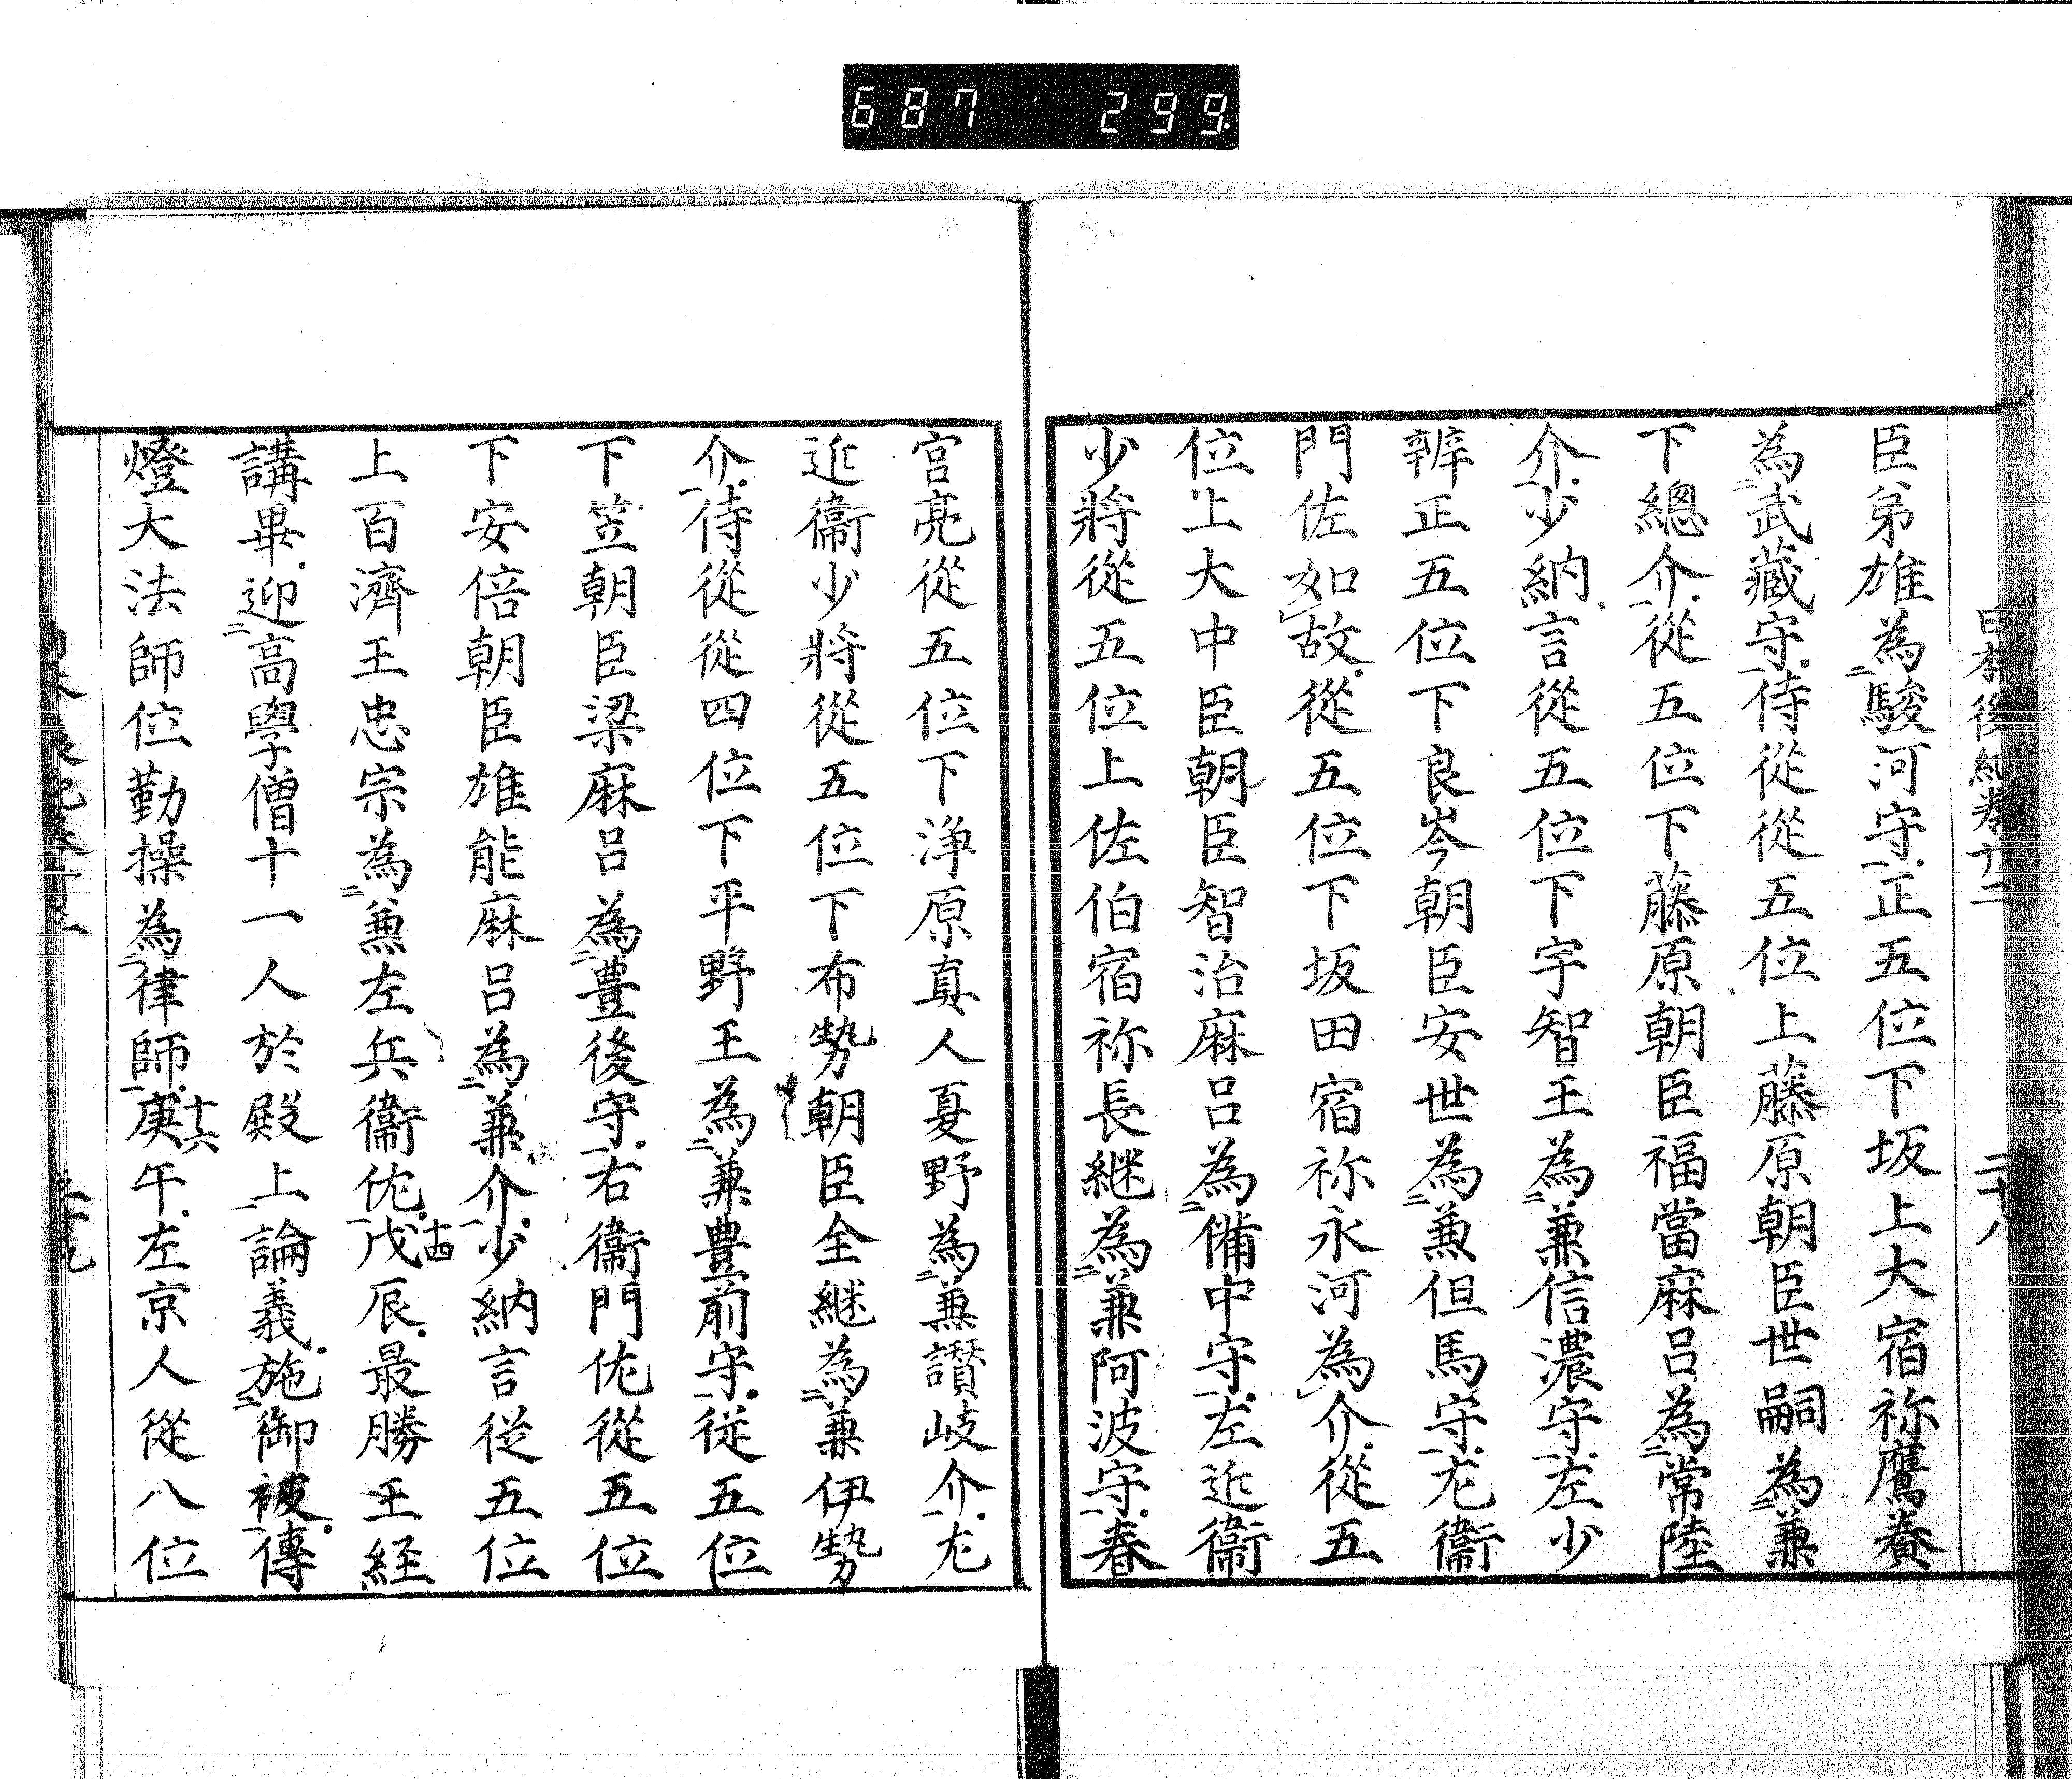 687 299
日本後紀卷十二 二十八
臣弟雄為駿河守正五位下坂上大宿祢鷹養
為武藏守侍從從五位上藤原朝臣世嗣為兼
下總介從五位下藤原朝臣福當麻呂為常陸
介少納言從五位下宇智王為兼信濃守左少
辨正五位下良岑朝臣安世為兼但馬守左衞
門佐如故從五位下坂田宿祢永河為介從五
位上大中臣朝臣智治麻呂為備中守左近衞
少將從五位上佐伯宿祢長継為兼阿波守春
宮亮從五位下浄原真人夏野為兼讃岐介左
近衞少將從五位下布勢朝臣全継為兼伊勢
介侍從從四位下平野王為兼豊前守従五位
下笠朝臣梁麻呂為豊後守右衞門佐從五位
下安倍朝臣雄能麻呂為兼介少納言従五位
上百濟王忠宗為兼左兵衞佐戊十四辰最勝王経
講畢迎高學僧十一人於殿上論義施御被傳
燈大法師位勤操為律師庚十六午左京人從八位